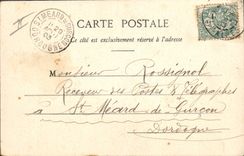 CARTE POSTALE
Ce côté est exclusivement réservé à l'adresse
Monsieur Rossignol
Receveur des Postes & Télégraphes
à St Méard de Gurçon
Dordogne